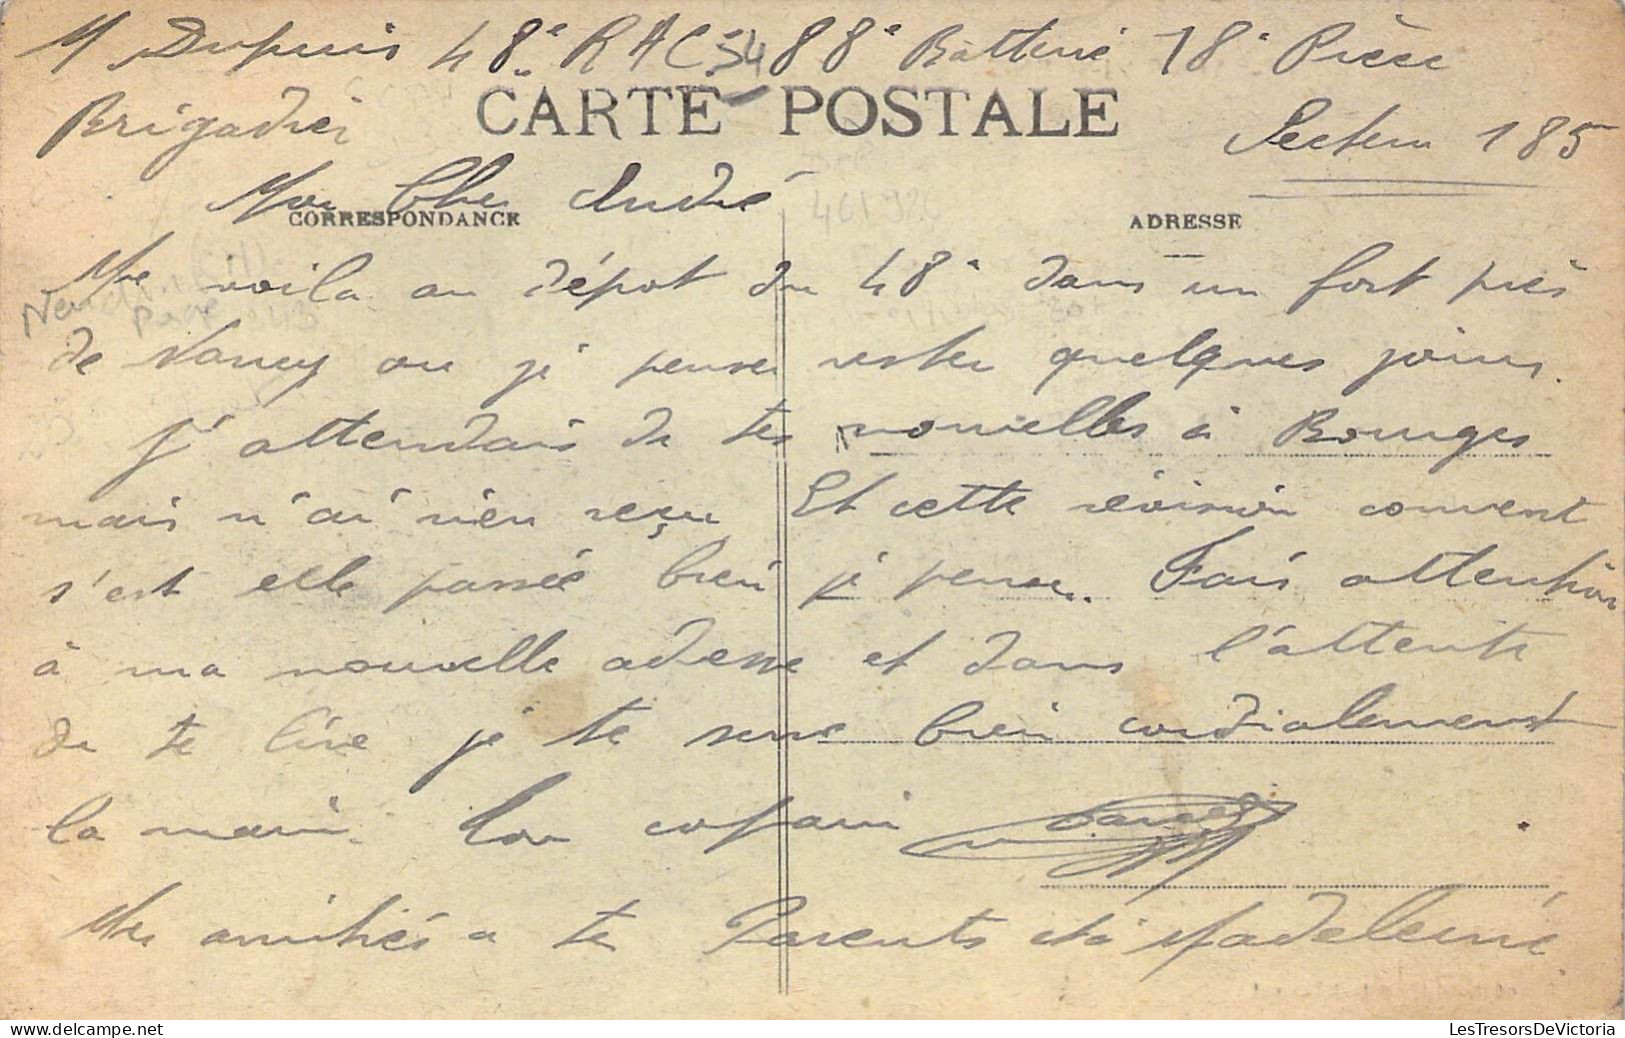 M Dupuis 48e RAC 88e Batterie 18e Pièce
Brigadier
CARTE POSTALE
Secteur 185
Mon Cher André
CORRESPONDANCE
ADRESSE
Me voila au dépot du 48e dans un fort près
de Nancy ou je pense rester quelques jours.
J'attendais de tes nouvelles à Bourges
mais n'ai rien reçu. Et cette révision comment
s'est elle passée bien je pense. Fais attention
à ma nouvelle adresse et dans l'attente
de te lire je te serre bien cordialement
la main. Ton copain
Mes amitiés a tes Parents et à Madeleine
LesTresorsDeVictoria.com